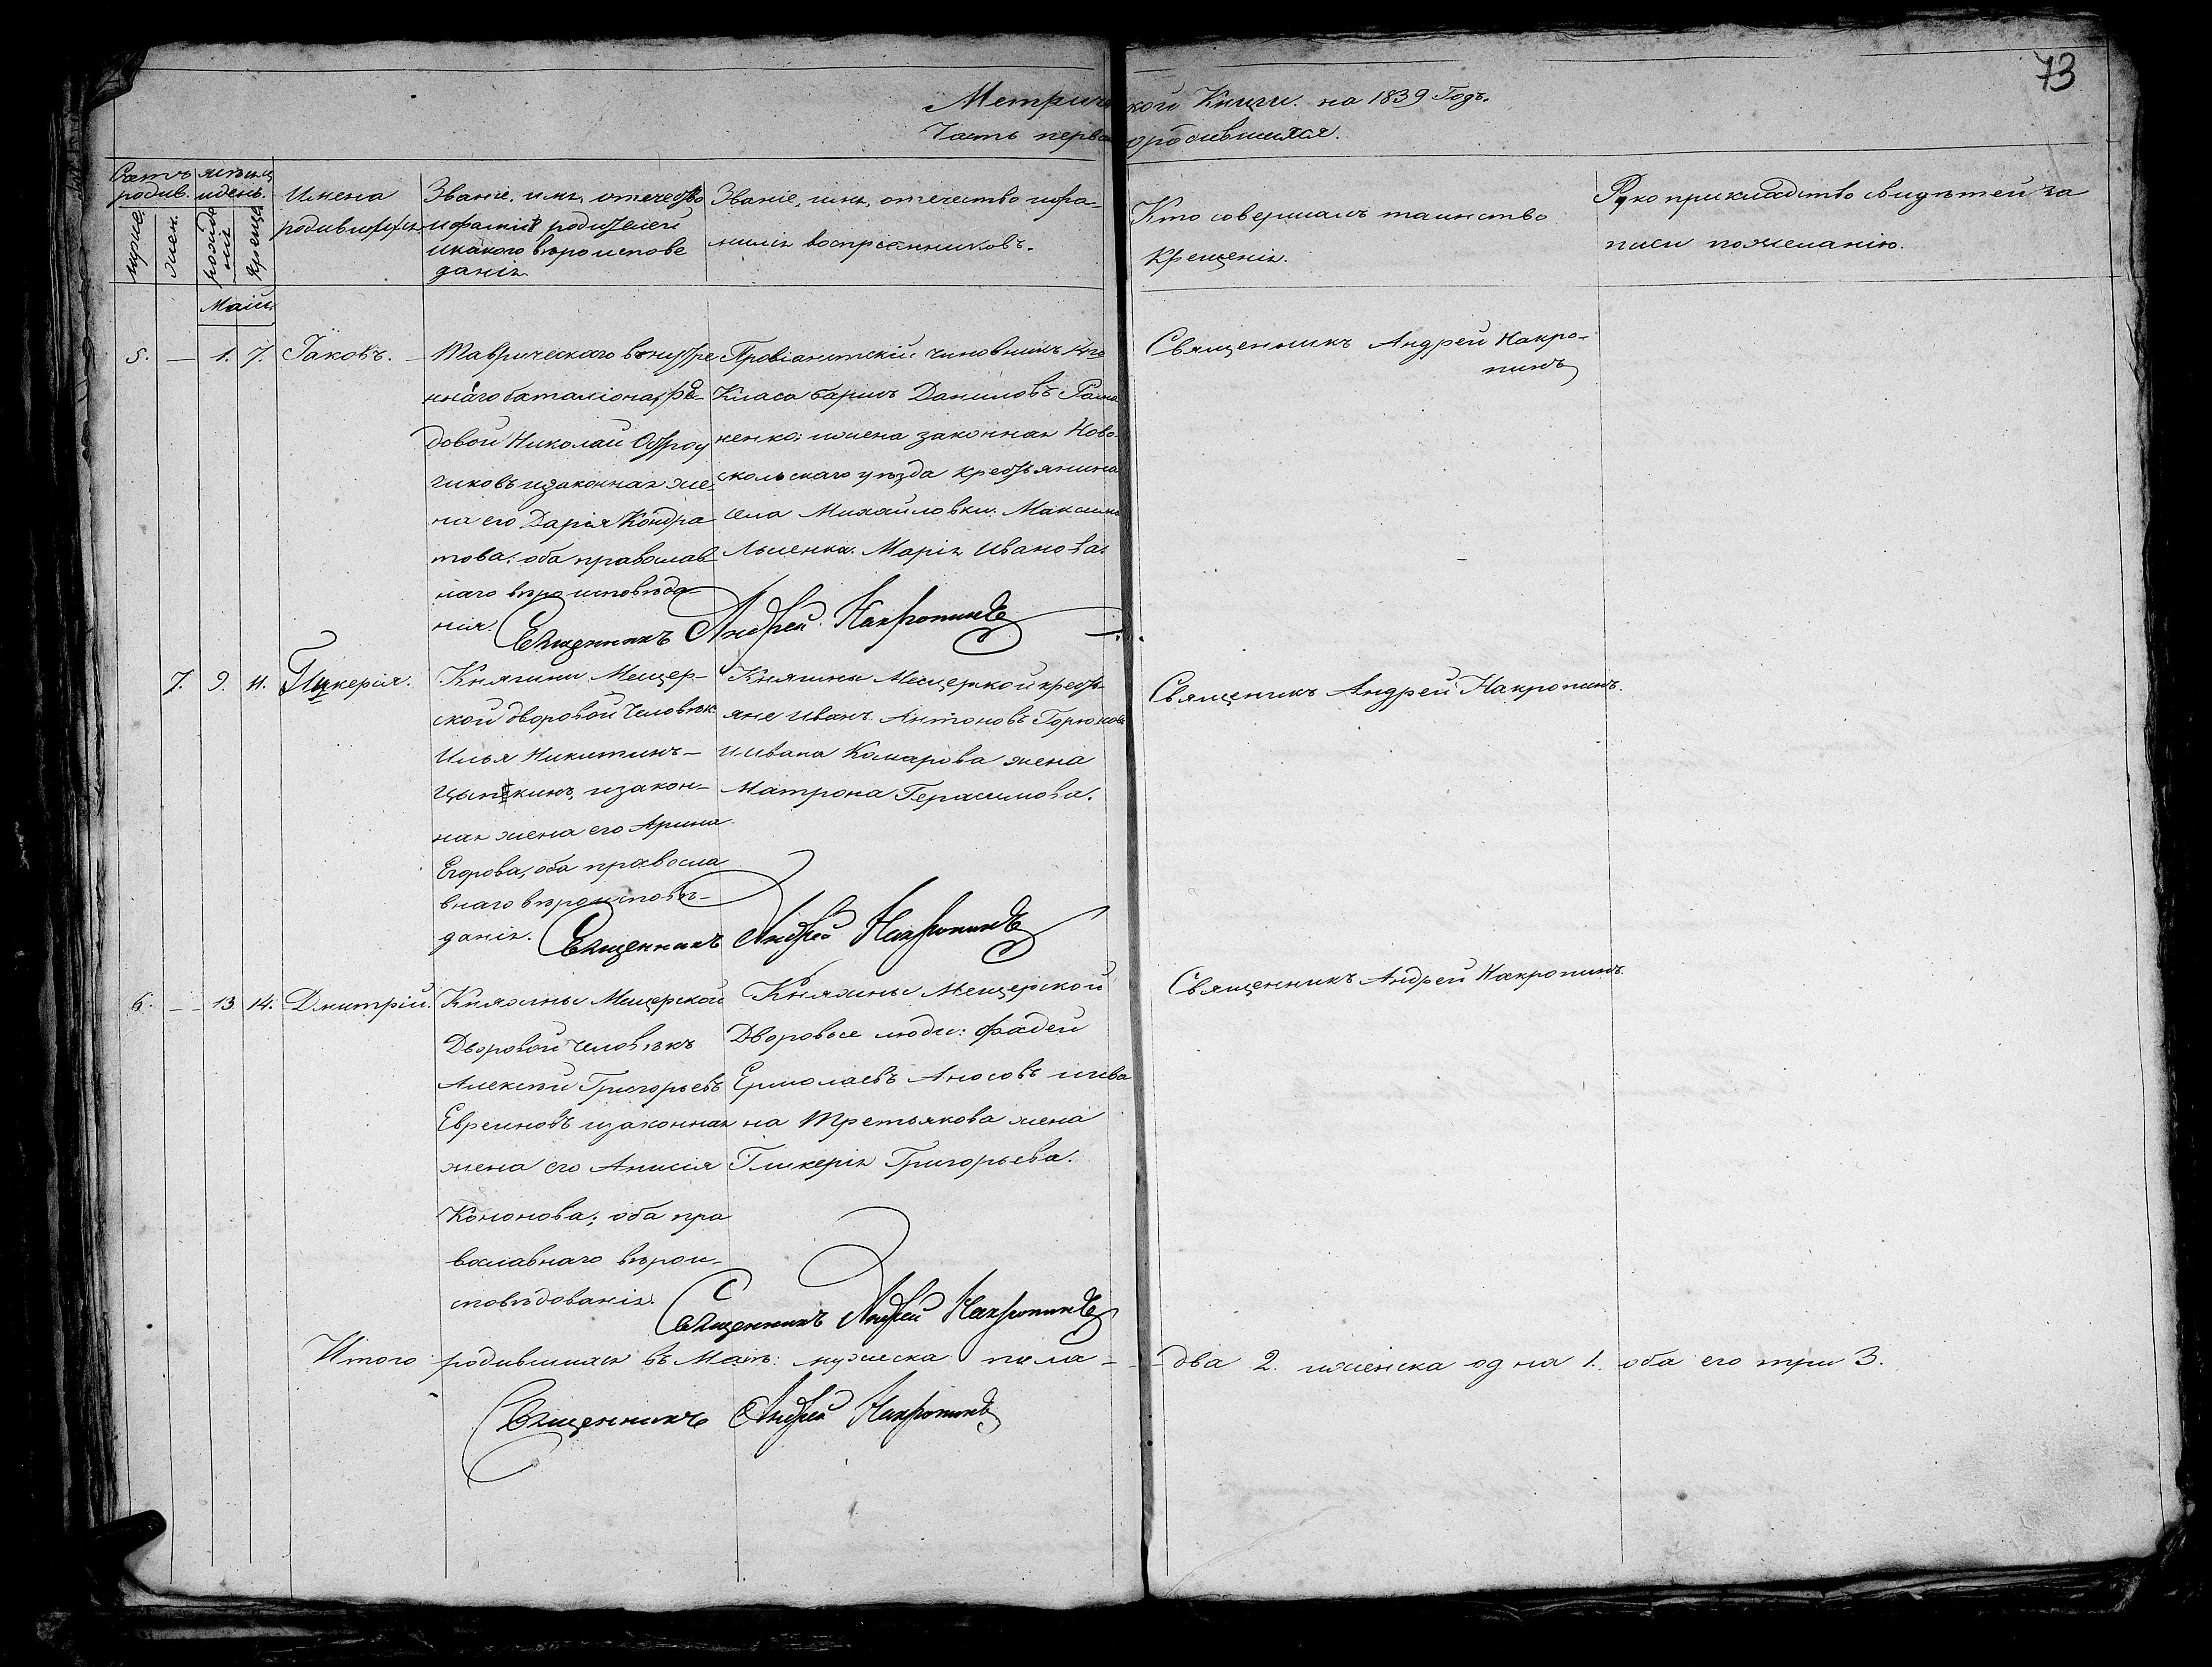 73
Метрической Книги. на 1839 Годъ.
Часть первая о родившихся.
Счетъ родив.
мѣсяцъ и день.
мужес.
женс.
рожденія
крещенія
Имена
родившихся
Званіе, имя, отечество
и фамилія родителей
и какого вѣроиспове
данія.
Званіе, имя, отечество и фа-
милія воспріемниковъ.
Кто совершалъ таинство
крещенія.
Рукоприкладство свидѣтелей за
писи по желанію.
Маій
5. — 1. 7. Іаковъ. —
Таврическаго внутре
ннаго баталіона, ря-
довой Николай Остроу
гиковъ и законная же-
на его Дарія Кондра
това: оба православ
наго вѣроисповѣда-
нія.
Провіантскій чиновникъ
Класа Барисъ Даниловъ
ненко; и жена законная Ново
скольскаго уѣзда крестьянина
села Михайловки. Максима
Лысенка. Марія Иванова
Священникъ Андрей Накро-
пинъ
Священникъ Андрей Накропинъ
7. 9. 11. Гликерія.
Княгини Мещер-
ской дворовой человѣкъ
Илья Никитинъ —
Цыпкинъ, и закон-
ная жена его Арина
Егорова, оба правосла
внаго вѣроисповѣ-
данія.
Княгины Мещерской кресть
яне Иванъ Антоновъ Горюновъ
и Ивана Комарова жена
Матрона Герасимова.
Священикъ Андрей Накропинъ.
Священникъ Андрей Накропинъ
6. — 13 14. Дмитрій.
Княгины Мещерской
Дворовой человѣкъ
Алексѣй Григорьевъ
Евреиновъ и законная
жена его Анисія
Кононова; оба пра
вославнаго вѣрои-
сповѣдованія.
Княгины Мещерской
Дворовые люди: Фадей
Ермолаевъ Аносовъ и Ива
на Третьякова жена
Гликерія Григорьева.
Священникъ Андрей Накропинъ.
Священникъ Андрей Накропинъ
Итого родившихся въ Маіѣ: мужеска пола — два 2. и женска одна 1. обаего три 3.
Священникъ Андрей Накропинъ